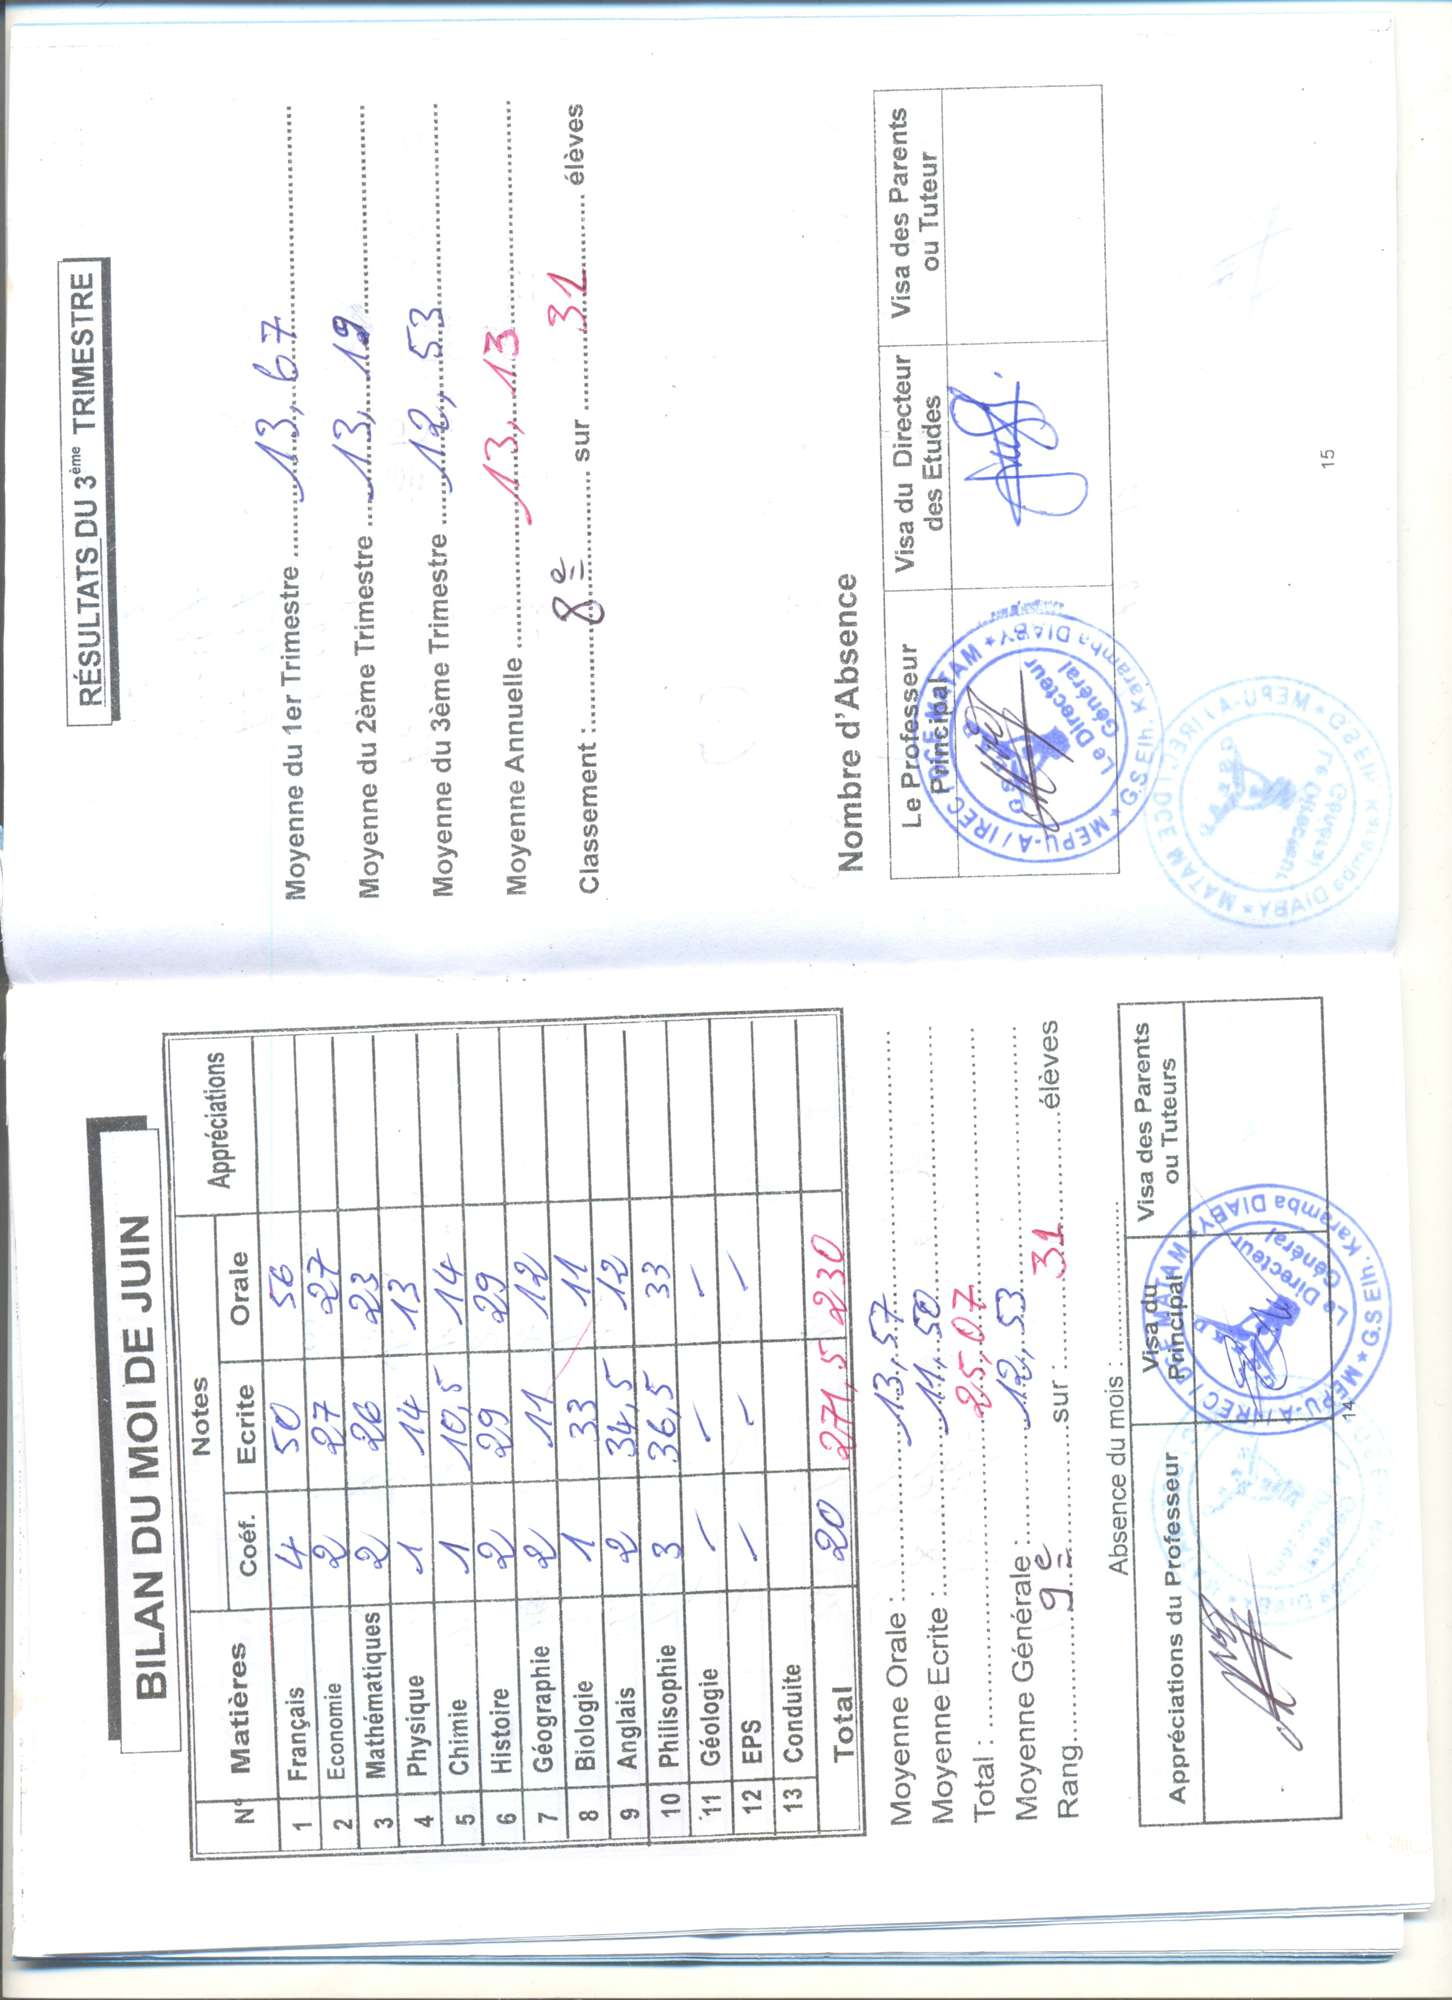 BILAN DU MOI DE JUIN
N° Matières Notes Appréciations
Coéf. Ecrite Orale
1 Français 4 50 56
2 Economie 2 27 27
3 Mathématiques 2 26 23
4 Physique 1 14 13
5 Chimie 1 10,5 14
6 Histoire 2 29 29
7 Géographie 2 11 12
8 Biologie 1 33 11
9 Anglais 2 34,5 12
10 Philisophie 3 36,5 33
11 Géologie - - -
12 EPS - - -
13 Conduite
Total 20 271,5 230
Moyenne Orale : 13,57
Moyenne Ecrite : 11,50
Total : 25,07
Moyenne Générale : 12,53
Rang 9e sur : 31 élèves
Absence du mois :
Appréciations du Professeur Visa du Principal Visa des Parents ou Tuteurs
MEPU-A / IREC / DCE MATAM
G.S Elh. Karamba DIABY
Le Directeur
Général
14
RÉSULTATS DU 3ème TRIMESTRE
Moyenne du 1er Trimestre 13,67
Moyenne du 2ème Trimestre 13,19
Moyenne du 3ème Trimestre 12,53
Moyenne Annuelle 13,13
Classement : 8e sur 31 élèves
Nombre d'Absence
Le Professeur Principal Visa du Directeur des Etudes Visa des Parents ou Tuteur
MEPU-A / IREC / DCE MATAM
G.S Elh. Karamba DIABY
Le Directeur
Général
15